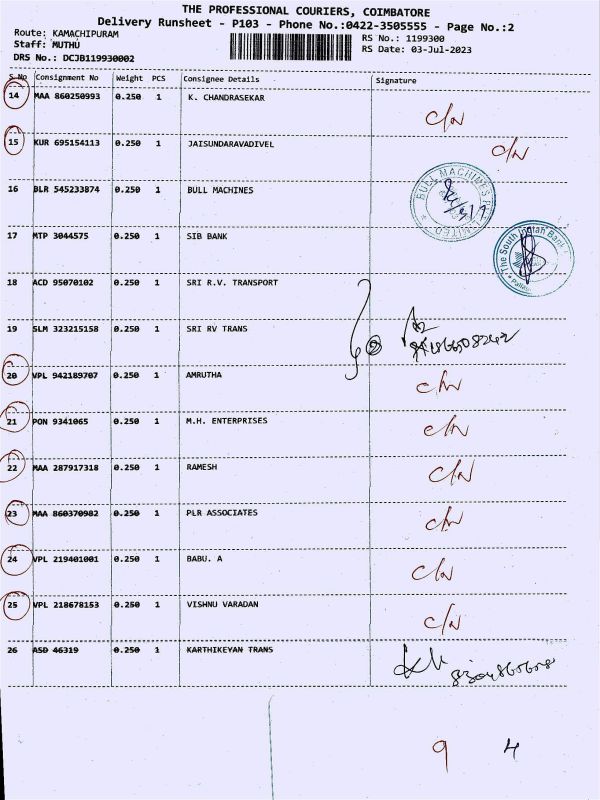 THE PROFESSIONAL COURIERS, COIMBATORE
Delivery Runsheet - P103 - Phone No.:0422-3505555 - Page No.:2
Route: KAMACHIPURAM
RS No.: 1199300
Staff: MUTHU
RS Date: 03-Jul-2023
DRS No.: DCJB119930002
S.No Consignment No Weight PCS Consignee Details Signature
14 MAA 860250993 0.250 1 K. CHANDRASEKAR
c/w
15 KUR 695154113 0.250 1 JAISUNDARAVADIVEL
c/w
16 BLR 545233874 0.250 1 BULL MACHINES
BULL MACHINES P LIMITED
17 MTP 3044575 0.250 1 SIB BANK
The South Indian Bank
18 ACD 95070102 0.250 1 SRI R.V. TRANSPORT
19 SLM 323215158 0.250 1 SRI RV TRANS
2
20 VPL 942189707 0.250 1 AMRUTHA
c/w
21 PON 9341065 0.250 1 M.H. ENTERPRISES
c/w
22 MAA 287917318 0.250 1 RAMESH
c/w
23 MAA 860370982 0.250 1 PLR ASSOCIATES
c/w
24 VPL 219401001 0.250 1 BABU. A
c/w
25 VPL 218678153 0.250 1 VISHNU VARADAN
c/w
26 ASD 46319 0.250 1 KARTHIKEYAN TRANS
9 4